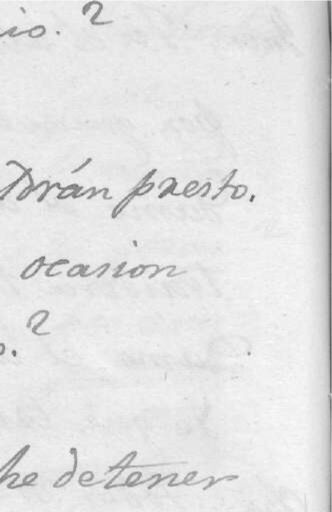 io. 2
drán presto.
ocasion
o. 2
he detener